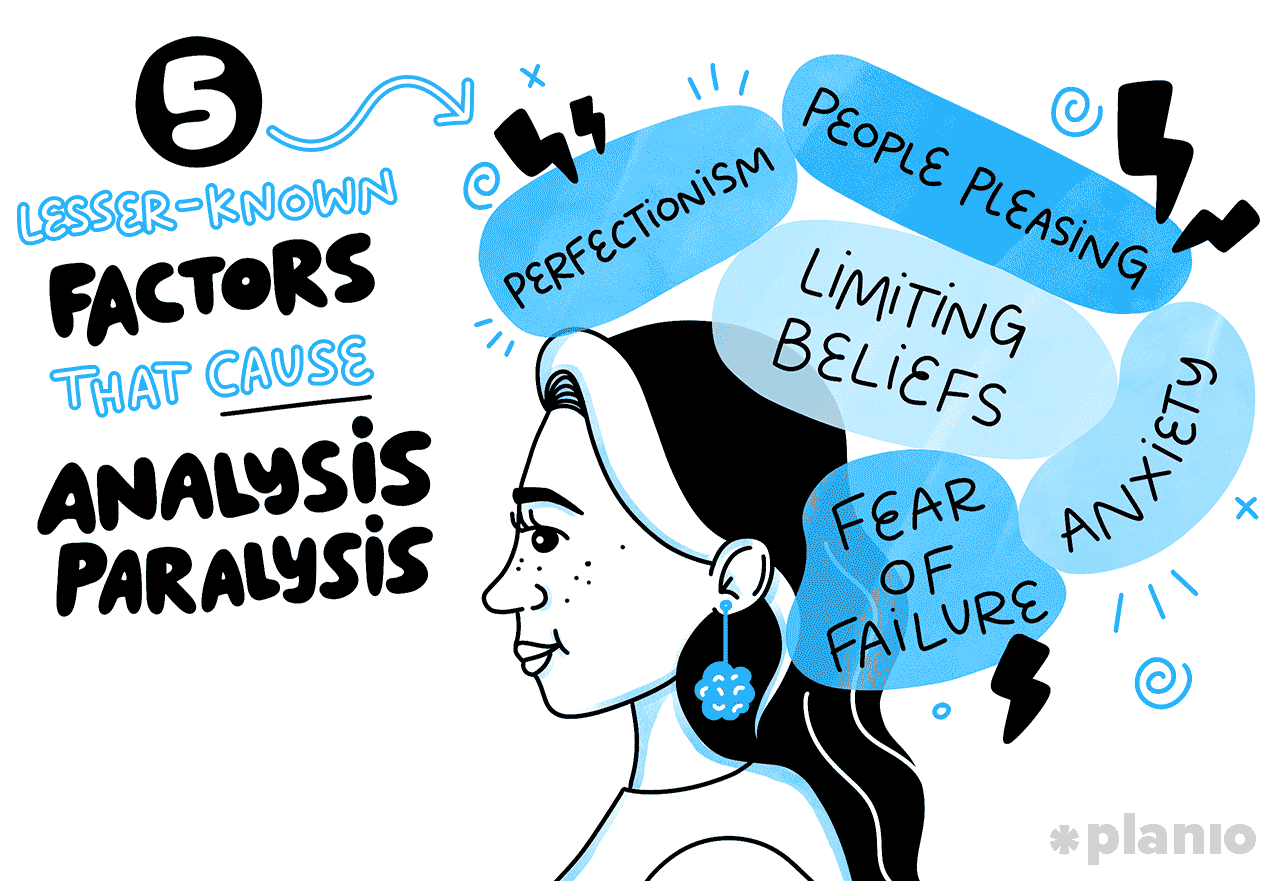 5
LESSER-KNOWN
FACTORS
THAT CAUSE
ANALYSIS
PARALYSIS
PERFECTIONISM
PEOPLE PLEASING
LIMITING
BELIEFS
ANXIETY
FEAR
OF
FAILURE
*planio